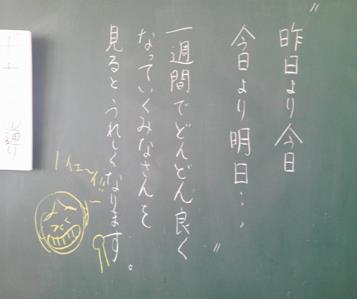 〝昨日より今日
今日より明日…〟
一週間でどんどん良く
なっていくみなさんを
見るとうれしくなります。
イェーイ
導